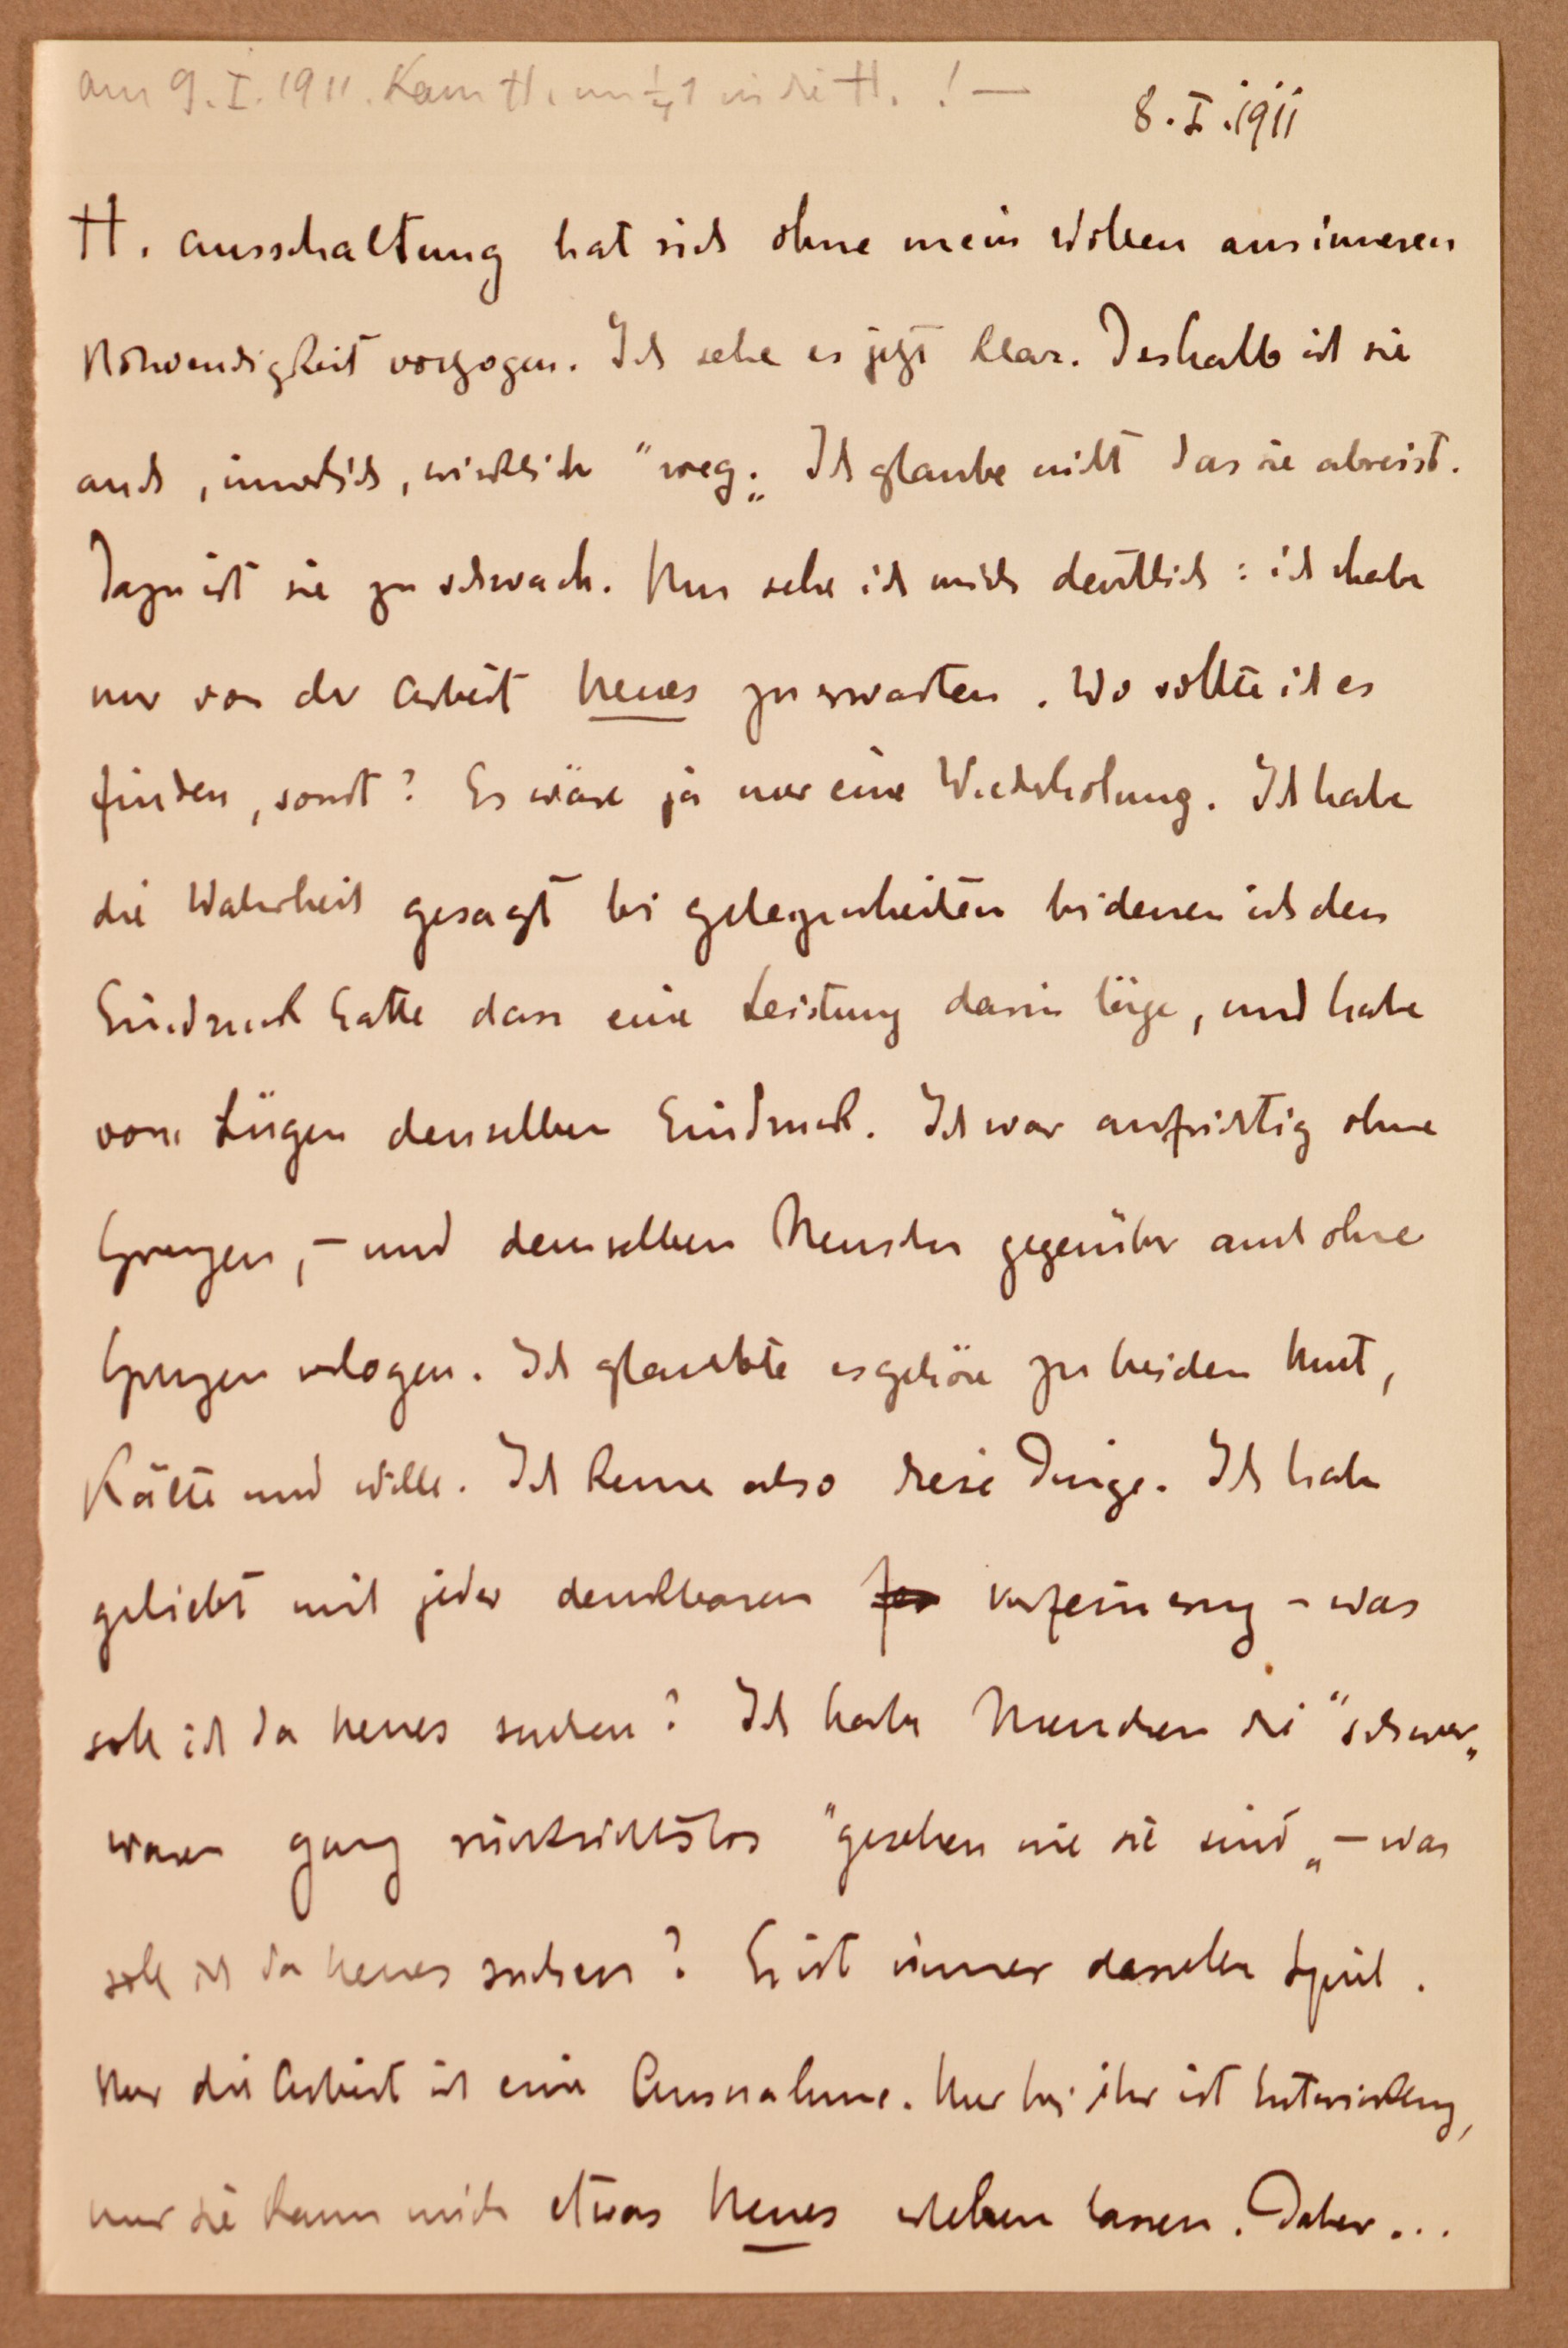 am 9. I. 1911. Kam H. um ¼1 in die H. ! —
8. I. 1911
H. Ausschaltung hat sich ohne mein Wollen aus inneren
Notwendigkeit vorzogen. Ich sehe es jetzt klar. Deshalb ist sie
auch, innerlich, wirklich "weg„. Ich glaube nicht das sie abreist.
Dazu ist sie zu schwach. Nun sehe ich mich deutlich: ich habe
nur von der Arbeit Neues zu erwarten. Wo sollte ich es
finden, sonst? Es wäre ja nur eine Wiederholung. Ich habe
die Wahrheit gesagt bei Gelegenheiten bei denen ich den
Eindruck hatte dass eine Leistung darin läge, und habe
vom Lügen denselben Eindruck. Ich war aufrichtig ohne
Grenzen, – und demselben Menschen gegenüber auch ohne
Grenzen verlogen. Ich glaubte es gehöre zu beiden Mut,
Kälte und Wille. Ich kenne also diese Dinge. Ich habe
geliebt mit jeder denkbaren Verfeinerung – was
soll ich da Neues suchen? Ich habe Menschen die "schwer„
waren ganz rücksichtslos "gesehen wie sie sind„ – was
soll ich da Neues suchen? Es ist immer dasselbe Spiel.
Nur die Arbeit ist eine Ausnahme. Nur bei ihr ist Entwicklung,
nur sie kann mich etwas Neues erleben lassen. Daher...